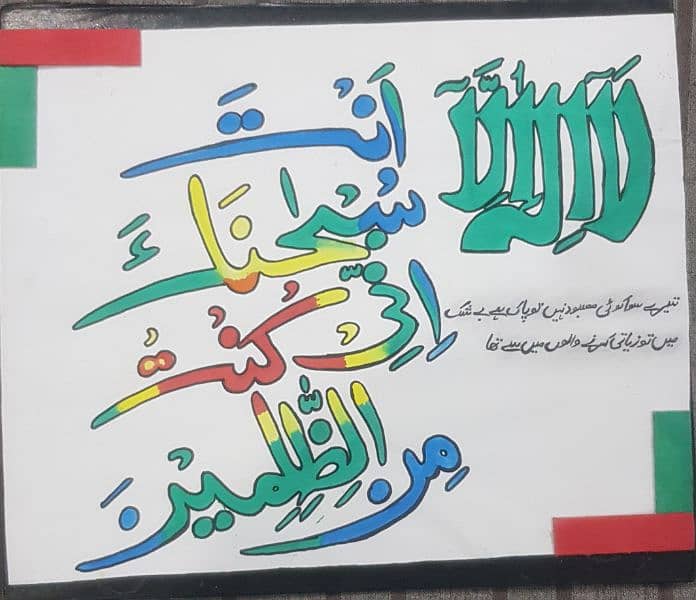 لَآ اِلٰهَ اِلَّآ
اَنْتَ
سُبْحٰنَكَ
اِنِّیْ كُنْتُ
مِنَ الظّٰلِمِیْنَ
تیرے سوا کوئی معبود نہیں تو پاک ہے بے شک
میں تو زیاتی کرنے والوں میں سے تھا